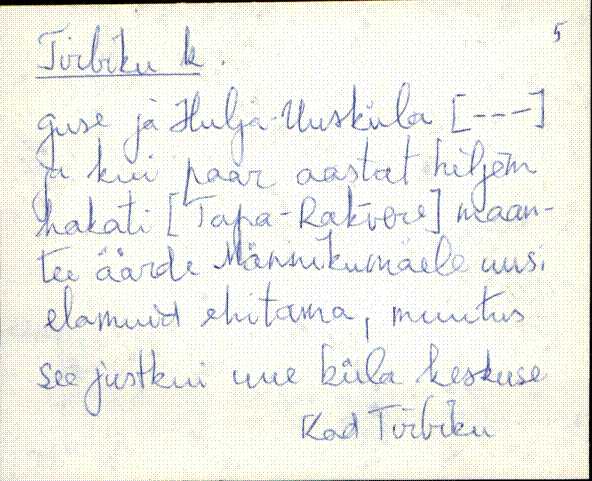 5
Tõrbiku k.
guse ja Hulja-Uusküla [---]
ja kui paar aastat hiljem
hakati [Tapa-Rakvere] maan-
tee äärde Männikumäele uusi
elamuid ehitama, muutus
see justkui uue küla keskuse
Kad Tõrbiku